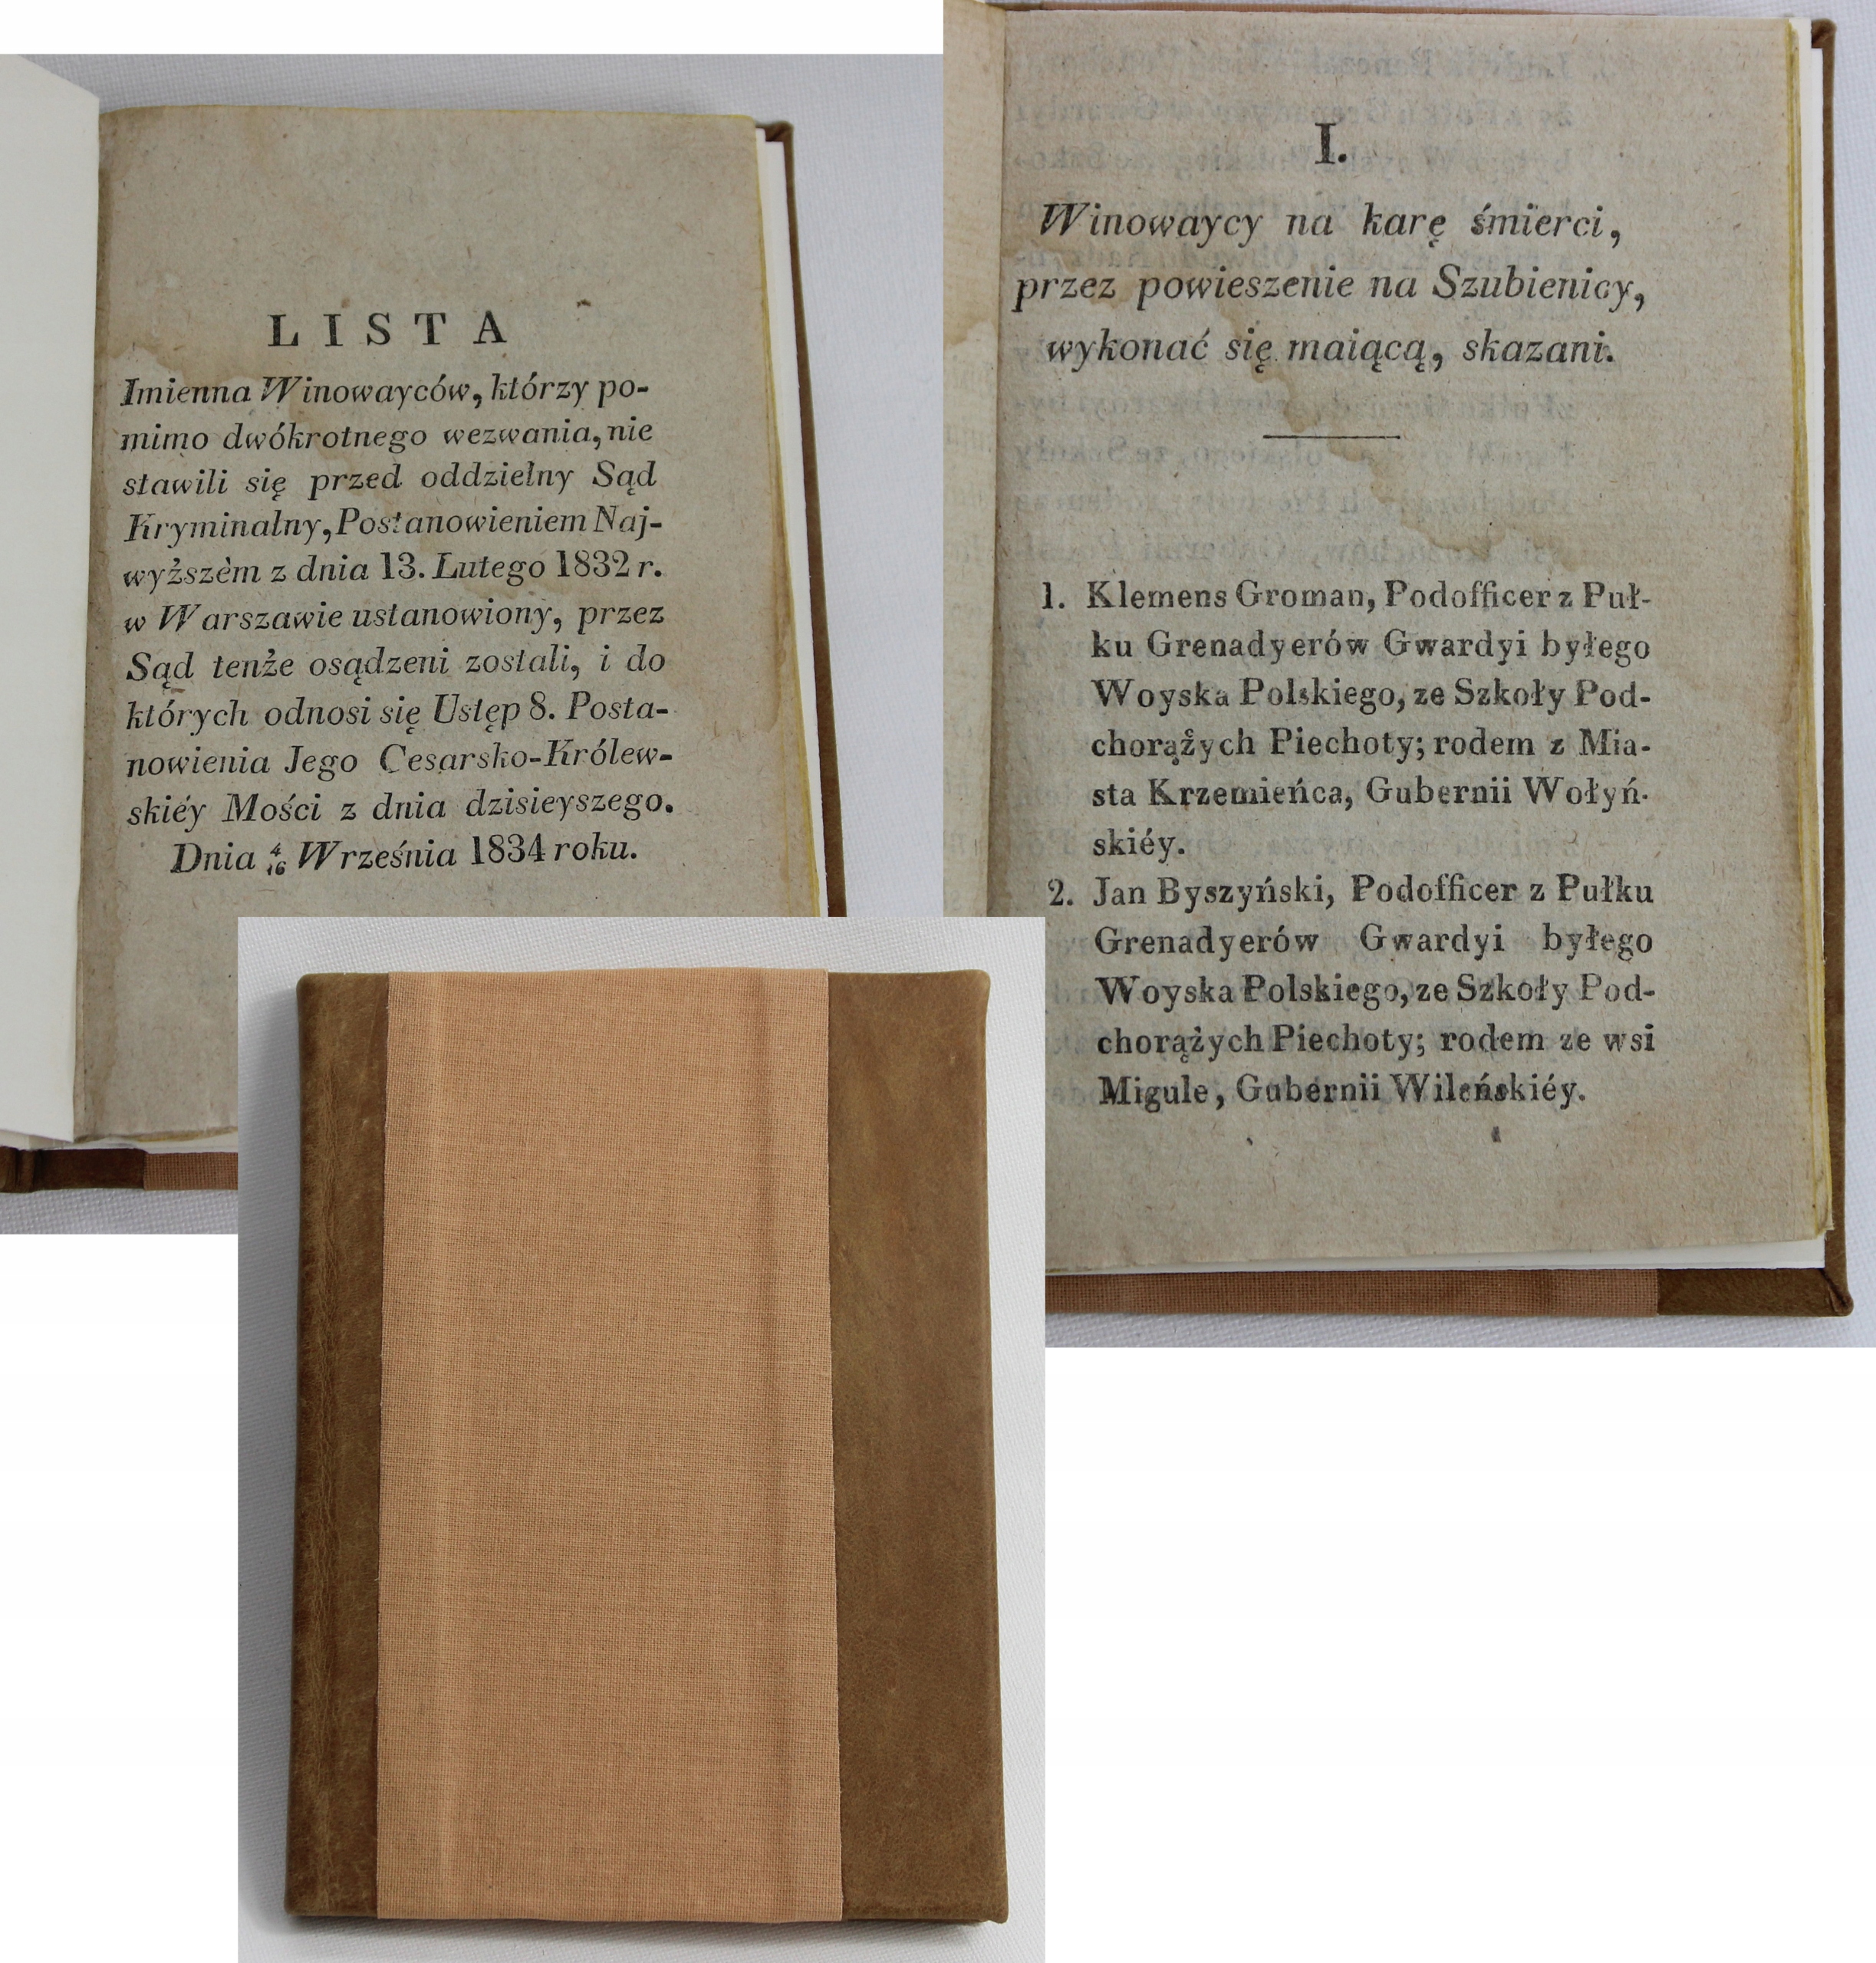 LISTA
Imienna Winowayców, którzy po-
mimo dwókrotnego wezwania, nie
stawili się przed oddzielny Sąd
Kryminalny, Postanowieniem Naj-
wyższèm z dnia 13. Lutego 1832 r.
w Warszawie ustanowiony, przez
Sąd tenże osądzeni zostali, i do
których odnosi się Ustęp 8. Posta-
nowienia Jego Cesarsko-Królew-
skiéy Mości z dnia dzisieyszego.
Dnia 4/16 Września 1834 roku.
I.
Winowaycy na karę śmierci,
przez powieszenie na Szubienicy,
wykonać się maiącą, skazani.
1. Klemens Groman, Podofficer z Puł-
ku Grenadyerów Gwardyi byłego
Woyska Polskiego, ze Szkoły Pod-
chorążych Piechoty; rodem z Mia-
sta Krzemieńca, Gubernii Wołyń-
skiéy.
2. Jan Byszyński, Podofficer z Pułku
Grenadyerów Gwardyi byłego
Woyska Polskiego, ze Szkoły Pod-
chorążych Piechoty; rodem ze wsi
Migule, Gubernii Wileńskiéy.